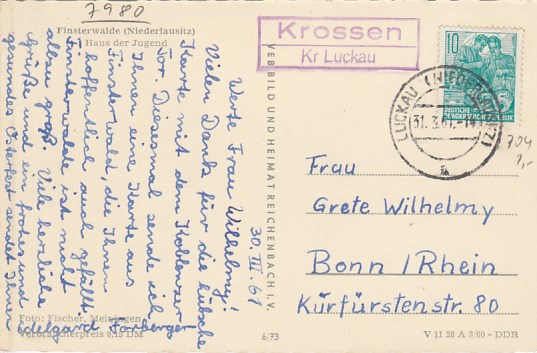 7980
Finsterwalde (Niederlausitz)
Haus der Jugend
30. III. 61
Werte Frau Wilhelmy!
Vielen Dank für die hübsche
Karte mit dem Koblenzer
Tor. Diesemal sende ich
Ihnen eine Karte aus
Finsterwald, die Ihnen
hoffentlich auch gefällt.
Finsterwalde ist nicht
allzu groß. Viele herzliche
Grüße und ein frohes und
gesundes Osterfest sendet Ihnen
Edelgard Farberger
Foto: Fischer, Meiningen
Verbraucherpreis 0,15 DM
VEB BILD UND HEIMAT REICHENBACH I. V.
6/73
Krossen
Kr Luckau
10
DEUTSCHE
DEMOKRATISCHE REPUBLIK
LUCKAU (NIEDERLAUSITZ)
31.3.61.-
a
704
Frau
Grete Wilhelmy
Bonn /Rhein
Kürfürstenstr. 80
V 11 28 A 3/60 - DDR